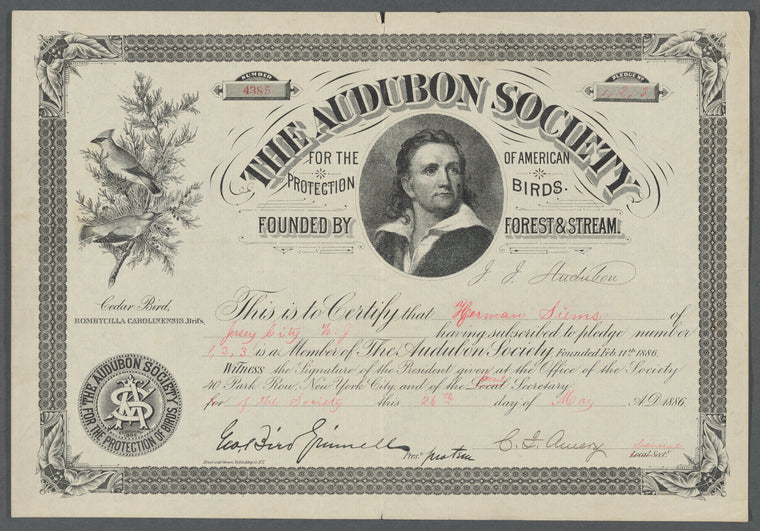 NUMBER
4385
PLEDGE Nº
1, 2, 3
THE AUDUBON SOCIETY
FOR THE PROTECTION OF AMERICAN BIRDS.
FOUNDED BY FOREST & STREAM.
J. J. Audubon
Cedar Bird,
BOMBYCILLA CAROLINENSIS, Bris.
This is to Certify that Herman Siems of
Jersey City N. J having subscribed to pledge number
1, 2, 3 is a Member of The Audubon Society Founded Feb 11th 1886.
WITNESS the Signature of the President given at the Office of the Society
40 Park Row, New York City and of the Local Secretary
for of the Society this 26th day of May A.D. 1886
THE AUDUBON SOCIETY
FOR THE PROTECTION OF BIRDS.
Geo. Bird Grinnell
Prest. pro tem
C. F. Amery
Local Sect.
Forest and Stream Publishing Co. N.Y.